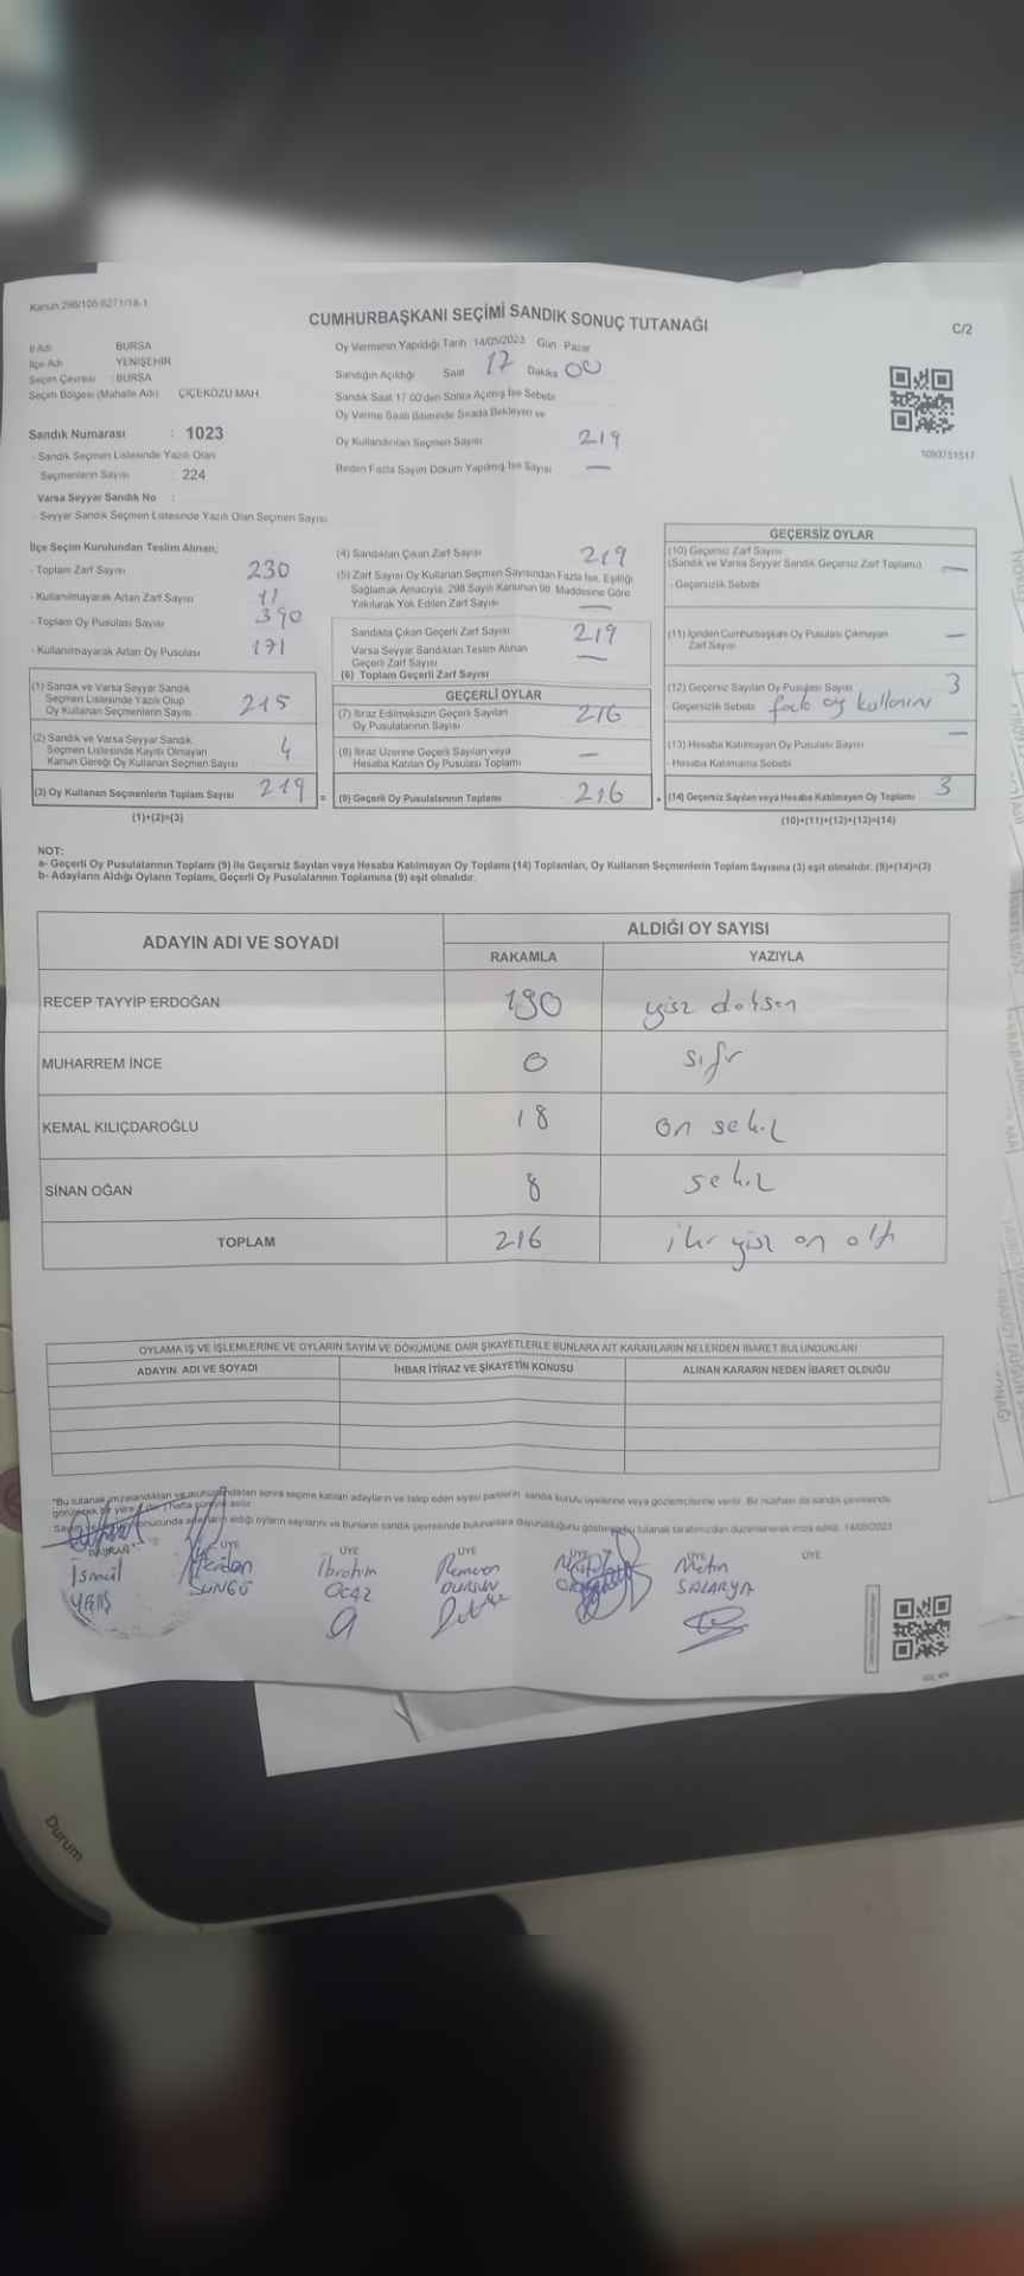 CUMHURBAŞKANI SEÇİMİ SANDIK SONUÇ TUTANAĞI
C/2
İl Adı BURSA
İlçe Adı YENİŞEHİR
Seçim Çevresi : BURSA
Seçim Bölgesi (Mahalle Adı) ÇİÇEKÖZÜ MAH.
Oy Vermenin Yapıldığı Tarih 14/05/2023 Gün Pazar
Sandığın Açıldığı Saat 17 Dakika 00
Sandık Saat 17.00'den Sonra Açılmış İse Sebebi
Oy Verme Saati Bitiminde Sırada Bekleyen ve
Oy Kullandırılan Seçmen Sayısı 219
Birden Fazla Sayım Döküm Yapılmış İse Sayısı —
Sandık Numarası : 1023
- Sandık Seçmen Listesinde Yazılı Olan
Seçmenlerin Sayısı : 224
Varsa Seyyar Sandık No :
- Seyyar Sandık Seçmen Listesinde Yazılı Olan Seçmen Sayısı
İlçe Seçim Kurulundan Teslim Alınan;
- Toplam Zarf Sayısı 230
- Kullanılmayarak Artan Zarf Sayısı 11
- Toplam Oy Pusulası Sayısı 390
- Kullanılmayarak Artan Oy Pusulası 171
(1) Sandık ve Varsa Seyyar Sandık
Seçmen Listesinde Yazılı Olup
Oy Kullanan Seçmenlerin Sayısı 215
(2) Sandık ve Varsa Seyyar Sandık
Seçmen Listesinde Kayıtlı Olmayan
Kanun Gereği Oy Kullanan Seçmen Sayısı 4
(3) Oy Kullanan Seçmenlerin Toplam Sayısı 219
(1)+(2)=(3)
(4) Sandıktan Çıkan Zarf Sayısı 219
(5) Zarf Sayısı Oy Kullanan Seçmen Sayısından Fazla İse, Eşitliği
Sağlamak Amacıyla, 298 Sayılı Kanunun 98. Maddesine Göre
Yakılarak Yok Edilen Zarf Sayısı —
Sandıkta Çıkan Geçerli Zarf Sayısı 219
Varsa Seyyar Sandıktan Teslim Alınan
Geçerli Zarf Sayısı —
(6) Toplam Geçerli Zarf Sayısı
GEÇERLİ OYLAR
(7) İtiraz Edilmeksizin Geçerli Sayılan
Oy Pusulalarının Sayısı 216
(8) İtiraz Üzerine Geçerli Sayılan veya
Hesaba Katılan Oy Pusulası Toplamı —
= (9) Geçerli Oy Pusulalarının Toplamı 216
GEÇERSİZ OYLAR
(10) Geçersiz Zarf Sayısı
(Sandık ve Varsa Seyyar Sandık Geçersiz Zarf Toplamı) —
- Geçersizlik Sebebi
(11) İçinden Cumhurbaşkanı Oy Pusulası Çıkmayan
Zarf Sayısı —
(12) Geçersiz Sayılan Oy Pusulası Sayısı 3
Geçersizlik Sebebi fazla oy kullanını
(13) Hesaba Katılmayan Oy Pusulası Sayısı —
- Hesaba Katılmama Sebebi
+ (14) Geçersiz Sayılan veya Hesaba Katılmayan Oy Toplamı 3
(10)+(11)+(12)+(13)=(14)
NOT:
a- Geçerli Oy Pusulalarının Toplamı (9) ile Geçersiz Sayılan veya Hesaba Katılmayan Oy Toplamı (14) Toplamları, Oy Kullanan Seçmenlerin Toplam Sayısına (3) eşit olmalıdır. (9)+(14)=(3)
b- Adayların Aldığı Oyların Toplamı, Geçerli Oy Pusulalarının Toplamına (9) eşit olmalıdır.
ADAYIN ADI VE SOYADI
ALDIĞI OY SAYISI
RAKAMLA YAZIYLA
RECEP TAYYİP ERDOĞAN 190 yüz doksan
MUHARREM İNCE 0 sıfr
KEMAL KILIÇDAROĞLU 18 on sekiz
SİNAN OĞAN 8 sekiz
TOPLAM 216 iki yüz on altı
OYLAMA İŞ VE İŞLEMLERİNE VE OYLARIN SAYIM VE DÖKÜMÜNE DAİR ŞİKAYETLERLE BUNLARA AİT KARARLARIN NELERDEN İBARET BULUNDUKLARI
ADAYIN ADI VE SOYADI İHBAR İTİRAZ VE ŞİKAYETİN KONUSU ALINAN KARARIN NEDEN İBARET OLDUĞU
ÜYE ÜYE ÜYE ÜYE ÜYE
İsmail İbrahim Ramazan Metin
SÜNGÜ DURSUN SALARYA
Durum